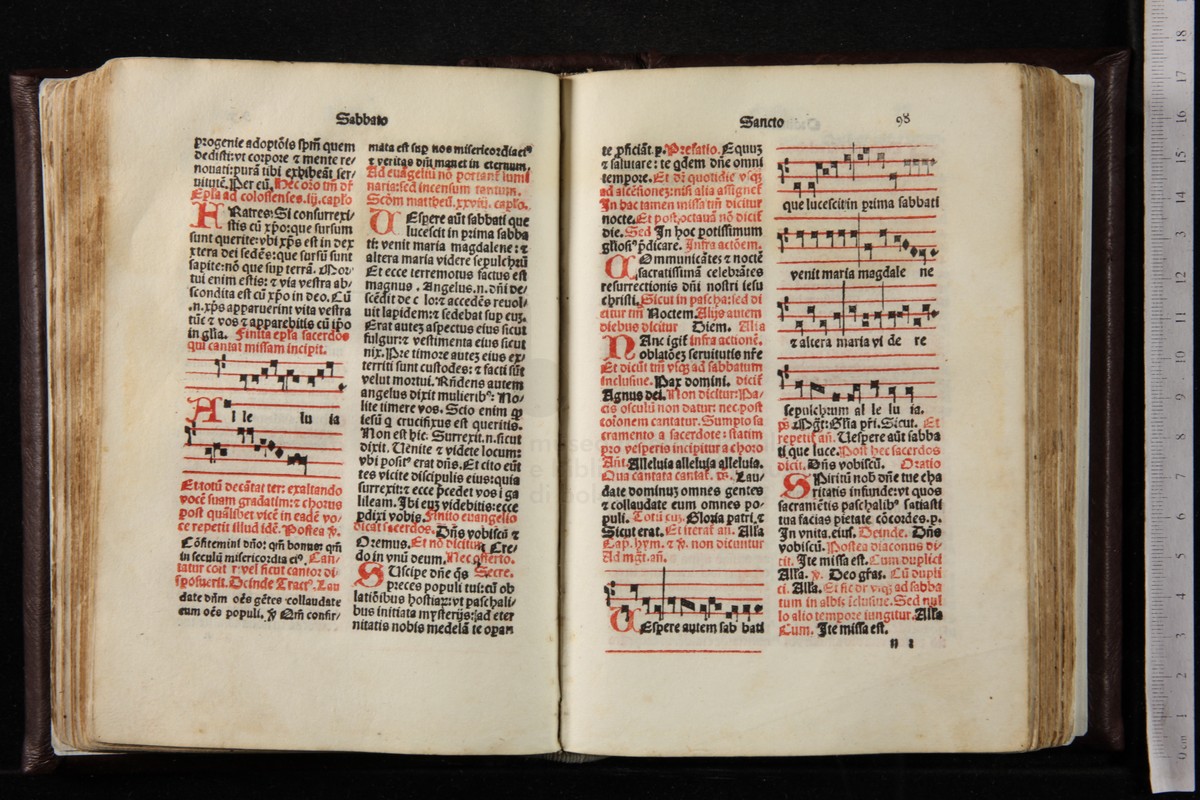 Sabbato
progenie adoptõis spm̃ quem
dedisti: vt corpore ⁊ mente re⸗
nouati: purã tibi exhibeãt ser⸗
uitutẽ. Per eũ. Hec oro tm̃ dr̃
Epl̃a ad colossenses. iij. caplo
FRatres: Si consurrexi⸗
stis cũ xp̃o: que sursum
sunt querite: vbi xp̃s est in dex
xtera dei sedẽs: que sursũ sunt
sapite: nõ que sup terrã. Mor⸗
tui enim estis: ⁊ via vestra ab⸗
scondita est cũ xp̃o in deo. Cũ
.n. xp̃s apparuerint vita vestra
tũc ⁊ vos ⁊ apparebitis cũ ip̃o
in gl̃ia. Finita epl̃a sacerdos
qui cantat missam incipit.
Al le lu ia
Et totũ decãtat ter: exaltando
vocẽ suam gradatim: ⁊ chorus
post quãlibet vicẽ in eadẽ vo⸗
ce repetit illud idẽ. Postea ℣.
Cõfitemini dño: qm̃ bonus: qm̃
in seculũ misericordia eiꝰ. Can⸗
tatur coit r vel sicut cantor di⸗
sposuerit. Deinde Tractꝰ. Lau
date dñm oẽs gẽtes collaudate
eum oẽs populi. ℣ Qm̃ confir⸗
mata est sup nos misericordia eiꝰ
⁊ veritas dñi manet in eternum.
Ad euangeliũ nõ portant lumi
naria: sed incensum tantum.
Scdm̃ mattheũ. xxviij. caplo.
VEspere aũt sabbati que
lucescit in prima sabba
ti: venit maria magdalene: ⁊
altera maria videre sepulchrũ
Et ecce terremotus factus est
magnus. Angelus. n. dñi de⸗
scẽdit de c lo: ⁊ accedẽs reuol⸗
uit lapidem: ⁊ sedebat sup euʒ.
Erat auteʒ aspectus eius sicut
fulgur: ⁊ vestimenta eius sicut
nix. Pre timore auteʒ eius ex⸗
territi sunt custodes: ⁊ facti sũt
velut mortui. Rñdens autem
angelus dixit mulieribꝰ: No⸗
lite timere vos. Scio enim ꝙ
iesũ q crucifixus est queritis.
Non est hic. Surrexit. n. sicut
dixit. Venite ⁊ videte locum:
vbi positꝰ erat dñs. Et cito eũt
tes dicite discipulis eius: quia
surrexit: ⁊ ecce p̃cedet vos i ga
lileam. Ibi euʒ videbitis: ecce
p̃dixi vobis. Finito euangelio
dicat sacerdos. Dñs vobiscũ ⁊
Oremus. Et nõ dicitur Cre⸗
do in vnũ deum. Nec offerto.
SUscipe dñe q̃s Secre.
preces populi tui: cũ ob
latiõibus hostiaꝝ: vt paschali⸗
bus initiata mysterijs: ad eter
nitatis nobis medelã te operan
Sancto 98
te ꝓficiãt. p. Prefatio. Equuʒ
⁊ salutare: te qdem dñe omni
tempore. Et dr̃ quotidie vsqʒ
ad ascẽsionez: nisi alia assignet̃
In hac tamen missa tm̃ dicitur
nocte. Et post octauã nõ dicit̃
die. Sed In hoc potissimum
gl̃iosiꝰ p̃dicare. Infra actiõem.
COmmunicãtes ⁊ noctẽ
sacratissimã celebrãtes
resurrectionis dñi nostri iesu
christi. Sicut in pascha: sed di
citur tm̃ Noctem. Alijs autem
diebus dicitur Diem. Alia
HAnc igit̃ infra actionẽ.
oblatõeʒ seruitutis nr̃e
Et dicũt tm̃ vsqʒ ad sabbatum
inclusiue. Pax domini. dicit̃
Agnus dei. Non dicitur: Pa⸗
cis osculũ non datur: nec post
cõionem cantatur. Sumpto sa
cramento a sacerdote: statim
pro vesperis incipitur a choro
Añ. Alleluia alleluia alleluia.
Qua cantata cantat̃. ps. Lau⸗
date dominuʒ omnes gentes
⁊ collaudate eum omnes po⸗
puli. Totũ cuʒ. Gloria patri. ⁊
Sicut erat. Et iterat̃ an. Alla
Cap. hym. ⁊ ℣. non dicuntur
Ad mgt̃. an.
VEspere autem sab bati
que lucescit in prima sabbati
venit maria magdale ne
⁊ altera maria vi de re
sepulchrum al le lu ia.
ps Mgt̃: Gl̃ia pr̃i. Sicut. Et
repetit̃ an. Vespere aũt sabba
ti que luce. Post hec sacerdos
dicit. Dñs vobiscũ. Oratio
SPiritũ nob dñe tue cha
ritatis infunde: vt quos
sacramẽtis paschalibꝰ satiasti
tua facias pietate cõcordes. p.
In vnita. eiusdẽ. Deinde. Dñs
vobiscũ. Postea diaconus di⸗
cit. Ite missa est. Cum duplici
Alla. ℣. Deo gr̃as. Cũ dupli
ci. Alla. Et sic dr̃ vsqʒ ad sabba
tum in albis ĩclusiue. Sed nul
lo alio tempore iungitur. Alla
Cum. Ite missa est.
n i